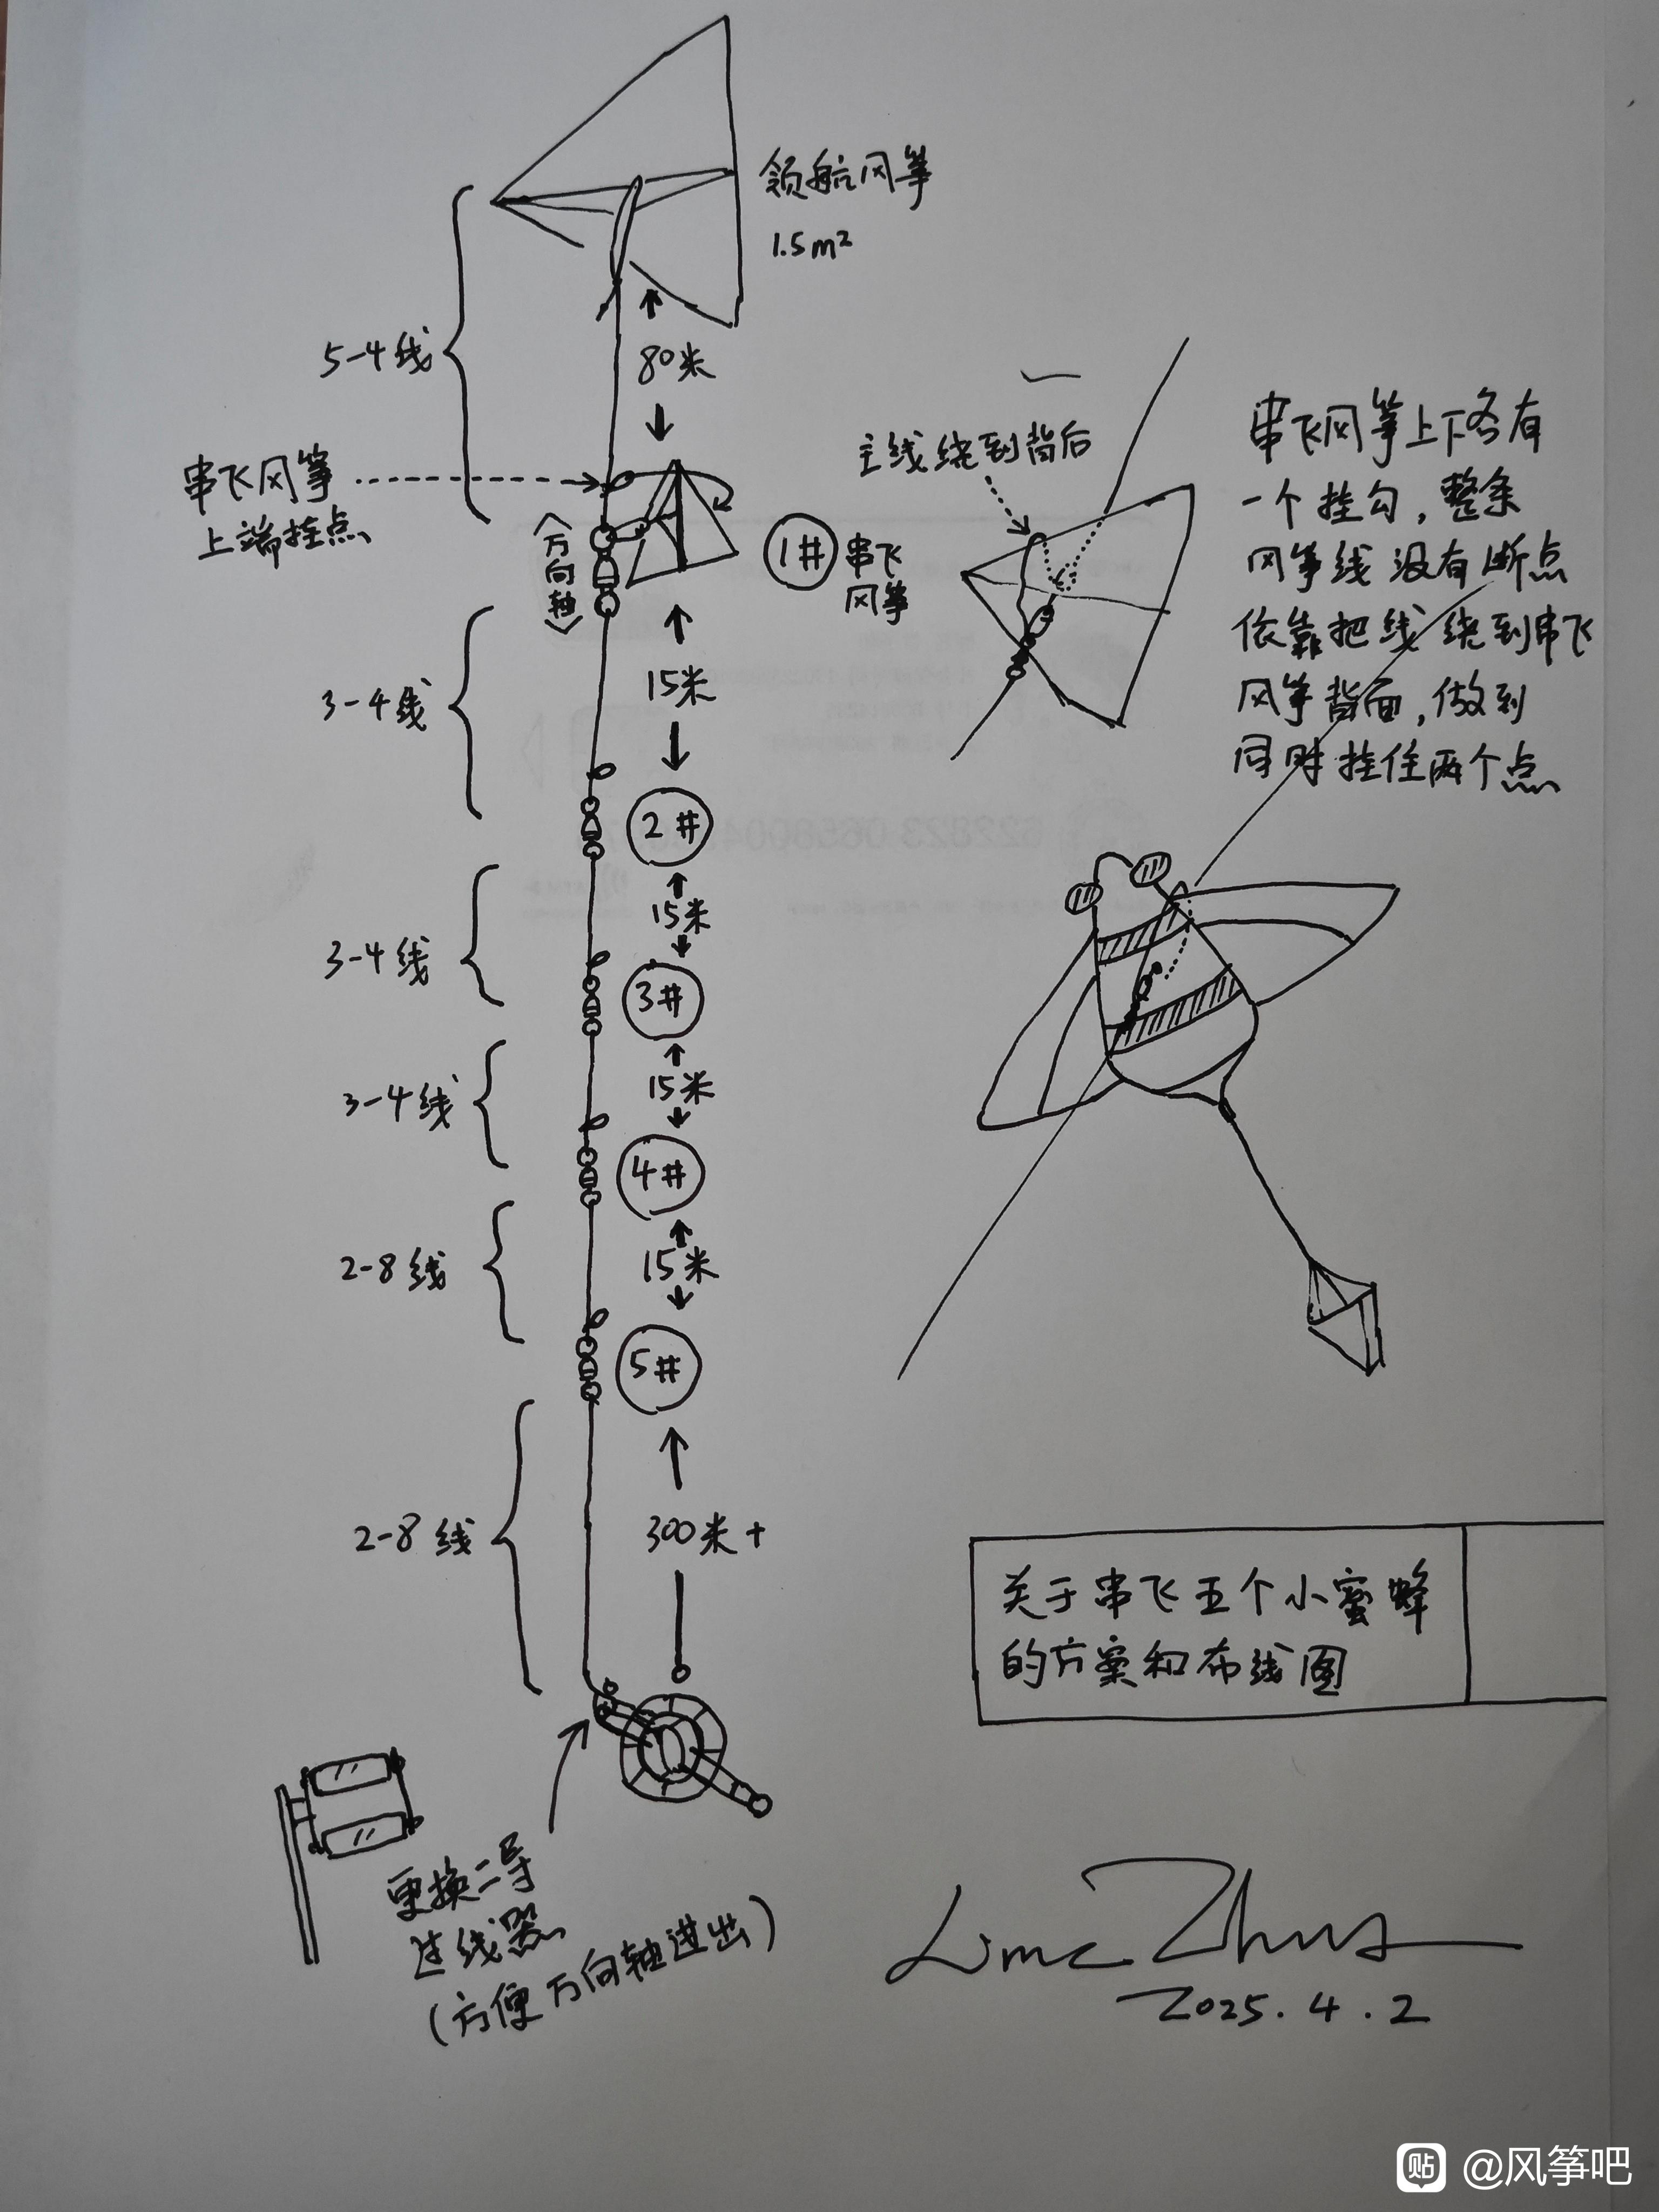 领航风筝
1.5m²
5-4线
80米
串飞风筝
上端挂点
<万向轴>
1# 串飞
风筝
主线绕到背后
串飞风筝上下各有
一个挂勾，整条
风筝线没有断点
依靠把线绕到串飞
风筝背面，做到
同时挂住两个点
3-4线
15米
2#
15米
3-4线
3#
15米
3-4线
4#
15米
2-8线
5#
2-8线
300米+
关于串飞五个小蜜蜂
的方案和布线图
更换二号
过线器
(方便万向轴进出)
2025.4.2
贴 @风筝吧